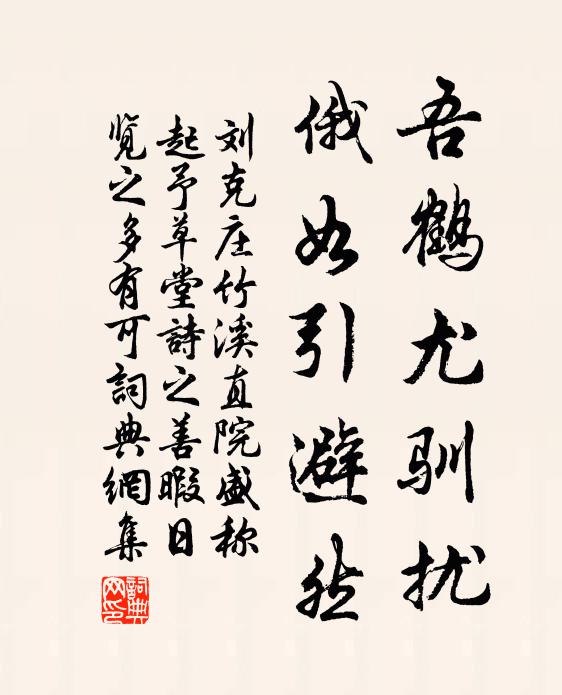 吾鹤尤驯扰
俄如引避然
刘克庄竹溪直院盛称
起予草堂詩之善暇日
览之多有可詞典網集
詞典网印